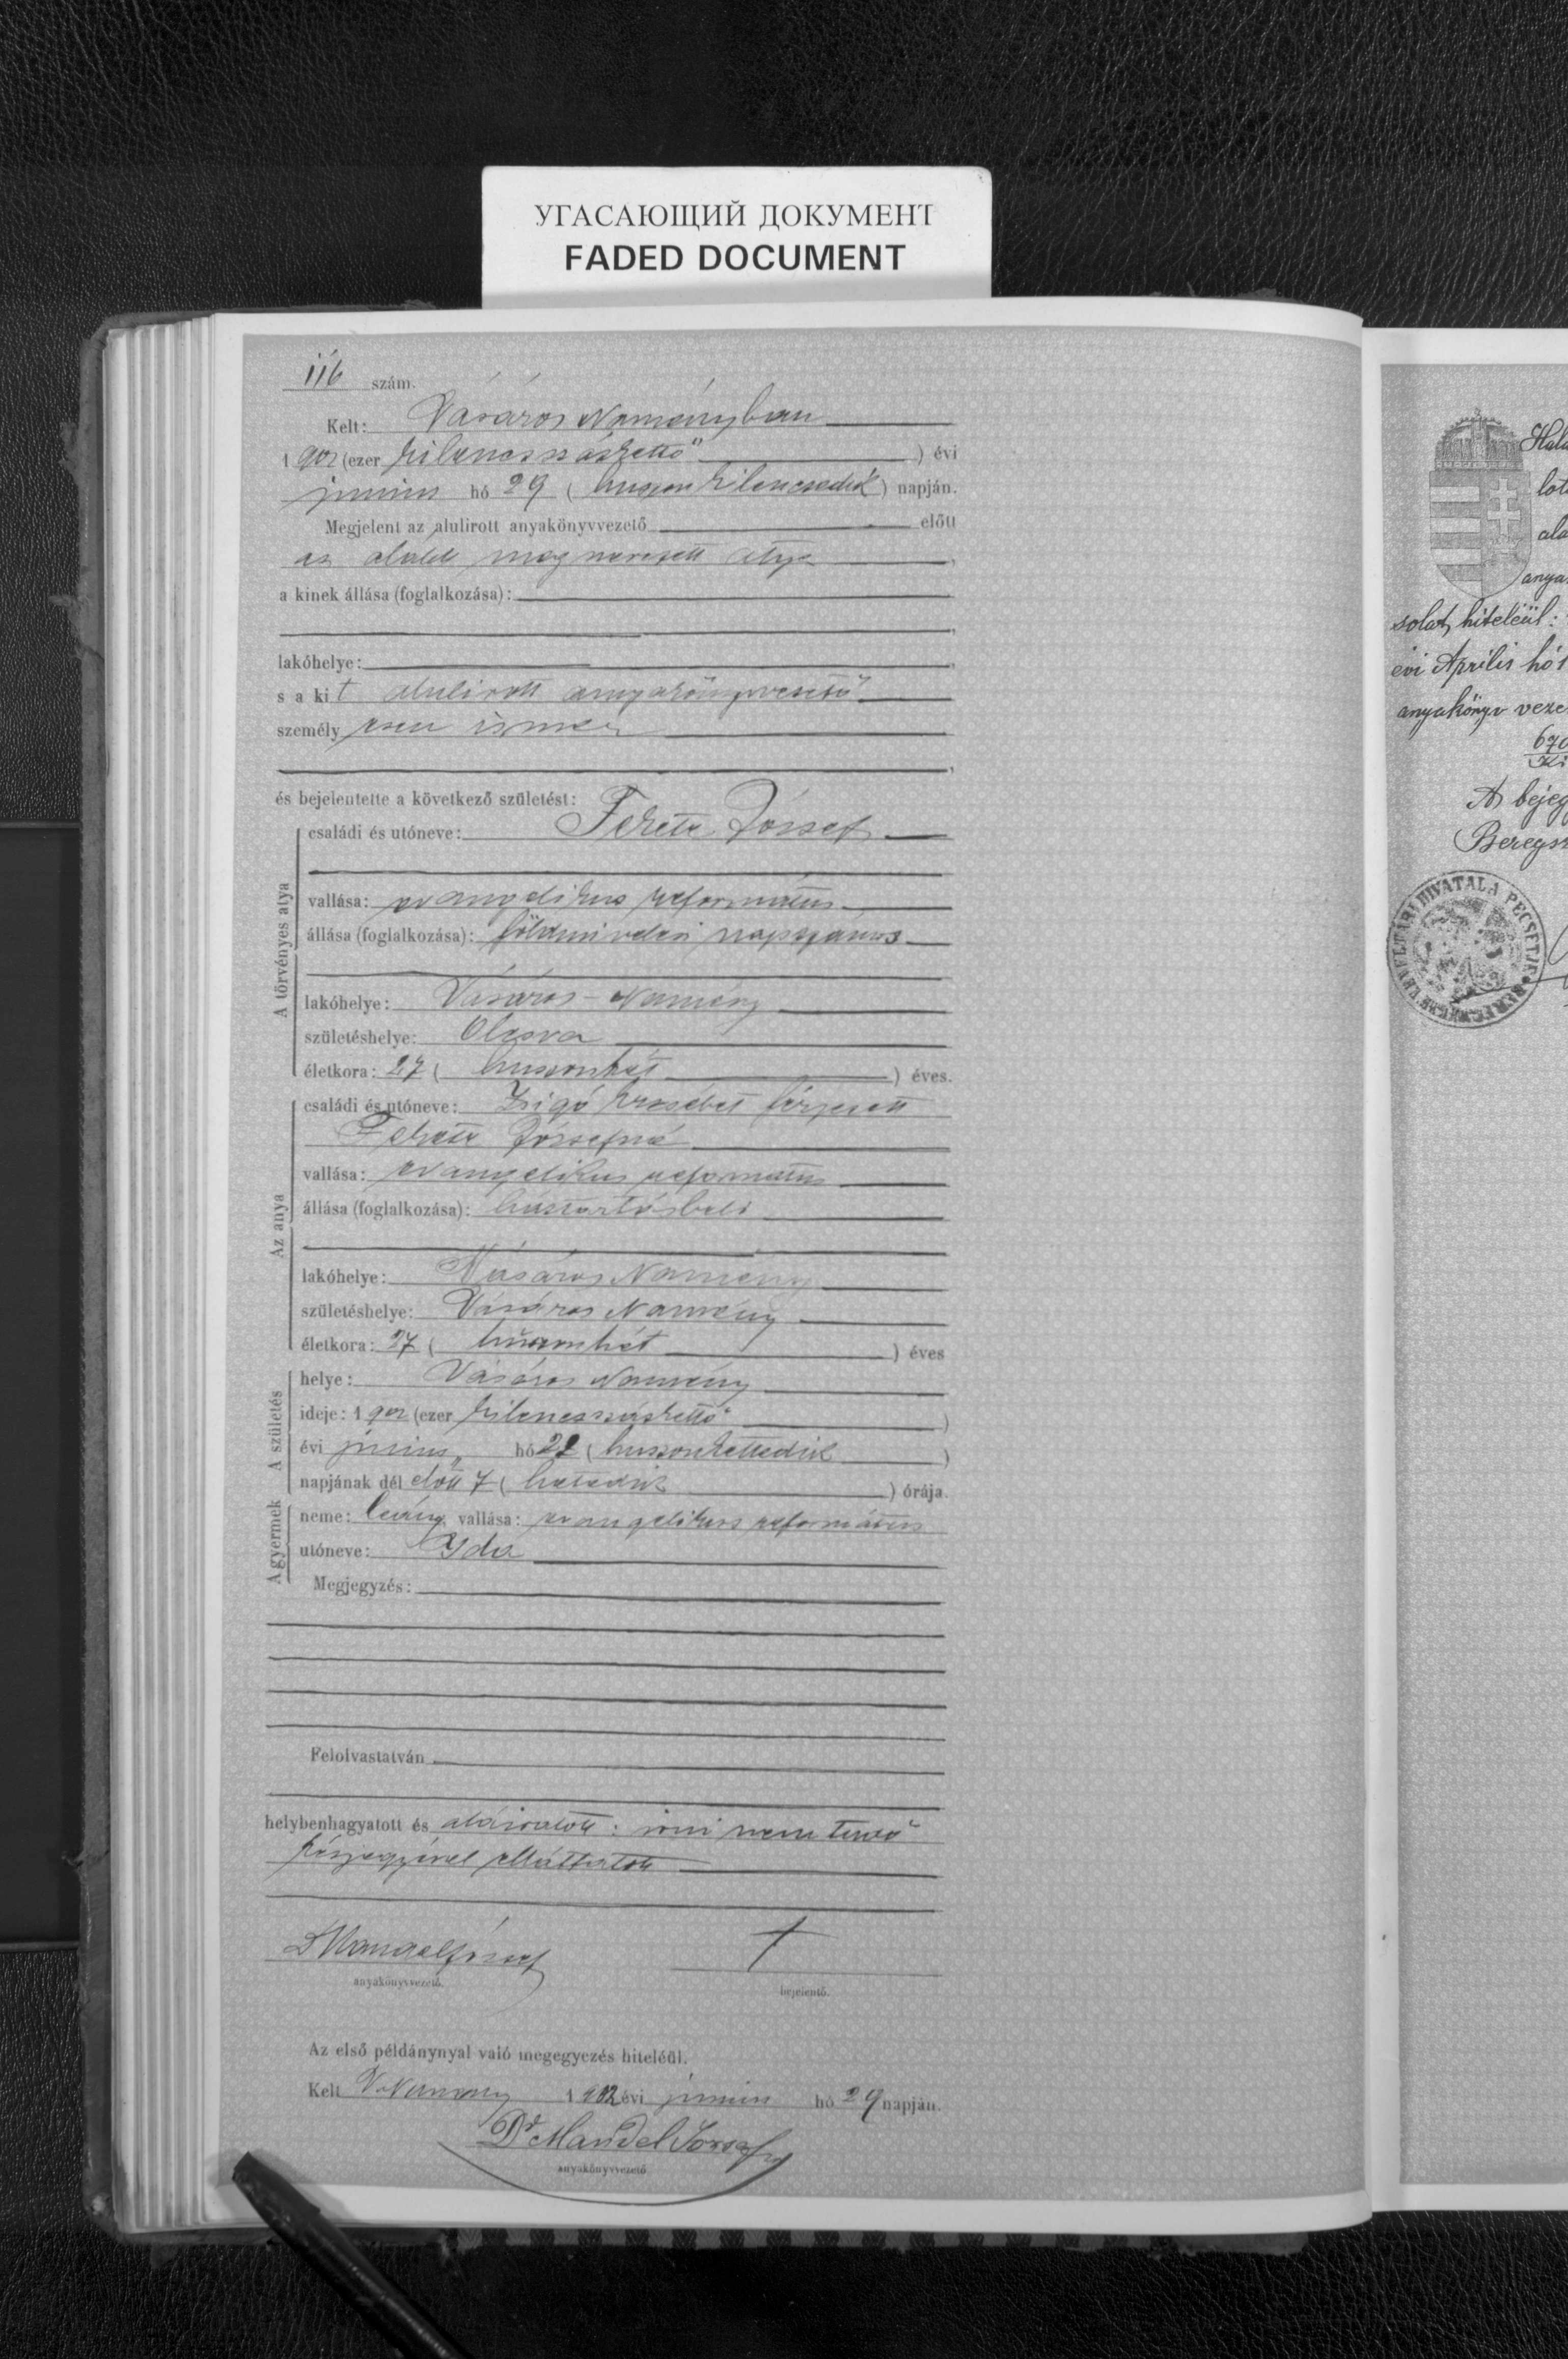 УГАСАЮЩИЙ ДОКУМЕНТ
FADED DOCUMENT
116 szám.
Kelt: Vásáros Naményban
1902 (ezer kilenczszázkettő) évi
junius hó 29 (huszonkilenczedik) napján.
Megjelent az alulirott anyakönyvvezető előtt
az alább megnevezett atya
a kinek állása (foglalkozása):
lakóhelye:
s a kit alulirott anyakönyvvezető
személyesen ismer
és bejelentette a következő születést:
A törvényes atya
családi és utóneve: Fekete József
vallása: evangelikus református
állása (foglalkozása): földmivelési napszámos
lakóhelye: Vásáros-Namény
születéshelye: Olcsva
életkora: 27 (huszonhét) éves.
Az anya
családi és utóneve: Zsigó Erzsébet férjezett
Fekete Józsefné
vallása: evangelikus református
állása (foglalkozása): háztartásbeli
lakóhelye: Vásáros Namény
születéshelye: Vásáros Namény
életkora: 27 (huszonhét) éves
A születés
helye: Vásáros Namény
ideje: 1902 (ezer kilenczszázkettő)
évi junius hó 22 (huszonkettedik)
napjának dél előtt 7 (hetedik) órája.
A gyermek
neme: leány vallása: evangelikus református
utóneve: Ida
Megjegyzés:
Felolvastatván
helybenhagyatott és aláiratott: irni nem tudó
kézjegyével elláttatott
Dr Mandel József
anyakönyvvezető.
+
bejelentő.
Az első példánynyal való megegyezés hiteléül.
Kelt V. Namény 1902 évi junius hó 29 napján.
Dr Mandel József
anyakönyvvezető
solat, hiteléül:
évi Április hó 1
anyakönyv veze
670
A bejeg
Beregsz